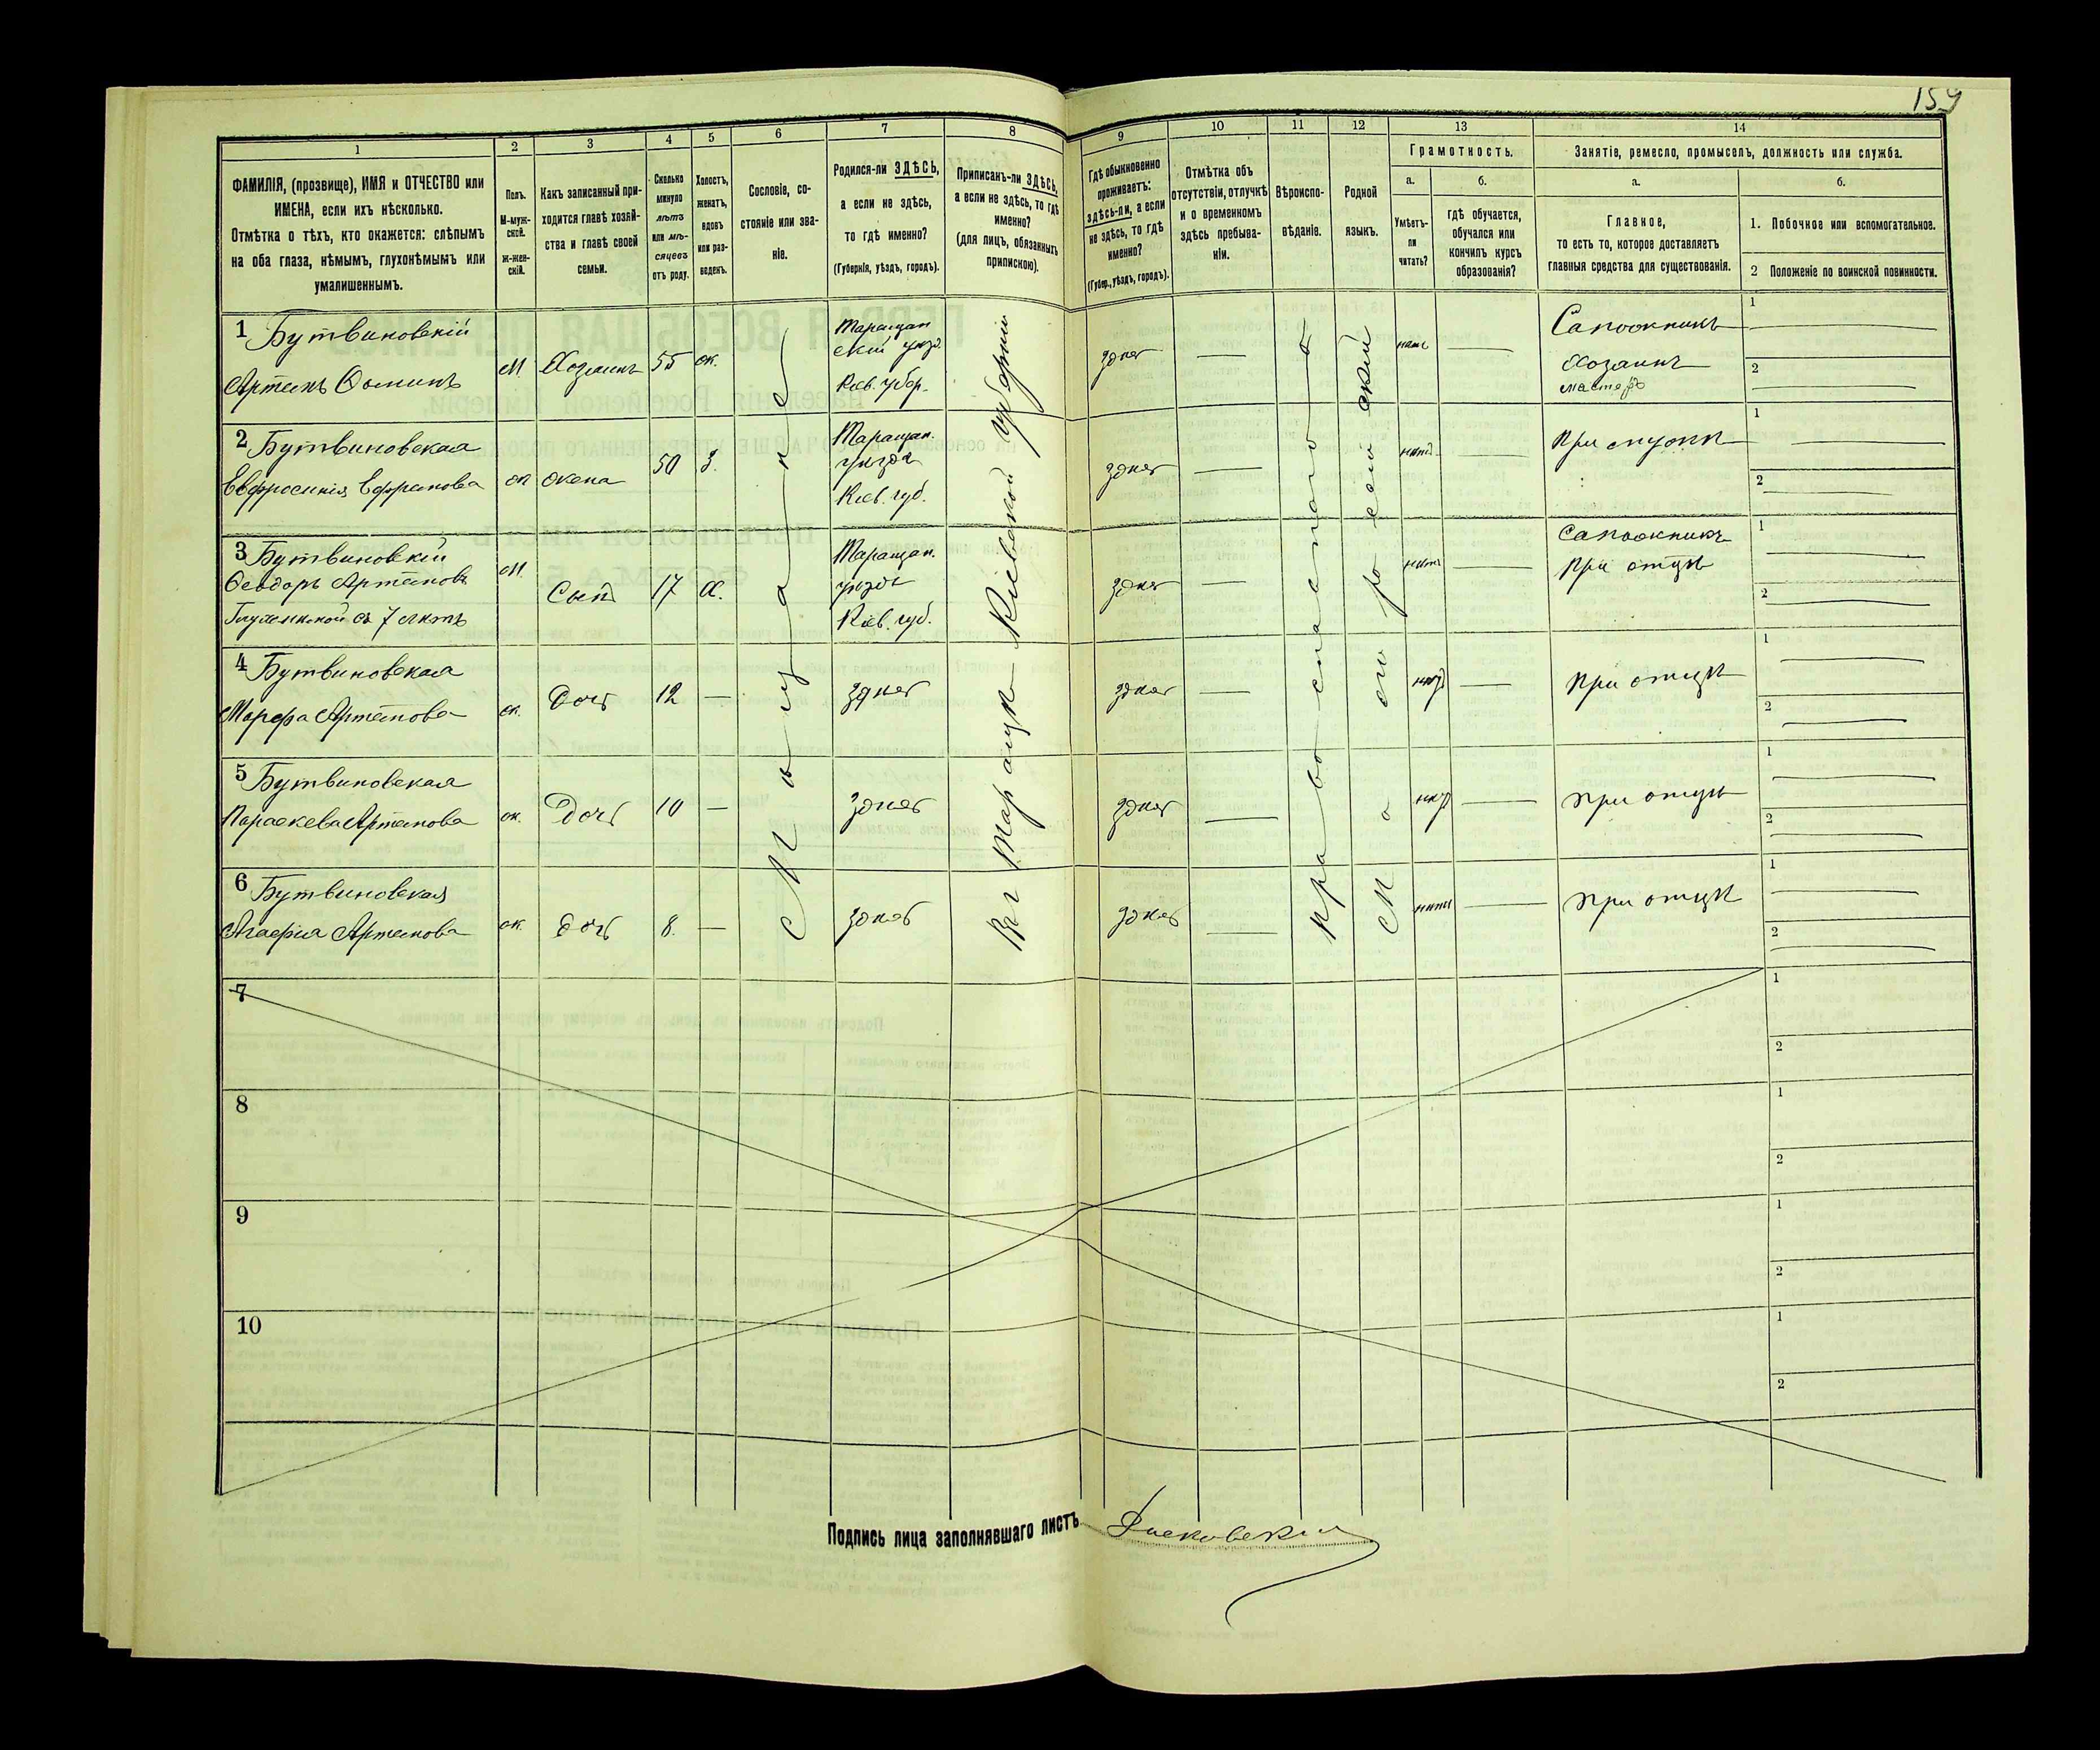 159
1
2
3
4
5
6
7
8
9
10
11
12
13
14
ФАМИЛІЯ, (прозвище), ИМЯ и ОТЧЕСТВО или
ИМЕНА, если ихъ нѣсколько.
Отмѣтка о тѣхъ, кто окажется: слѣпымъ
на оба глаза, нѣмымъ, глухонѣмымъ или
умалишеннымъ.
Полъ.
М-муж-
ской.
ж-жен-
скій.
Какъ записанный при-
ходится главѣ хозяй-
ства и главѣ своей
семьи.
Сколько
минуло
лѣтъ
или мѣ-
сяцевъ
отъ роду.
Холостъ,
женатъ,
вдовъ
или раз-
веденъ.
Сословіе, со-
стояніе или зва-
ніе.
Родился-ли ЗДѢСЬ,
а если не здѣсь,
то гдѣ именно?
(Губернія, уѣздъ, городъ).
Приписанъ-ли ЗДѢСЬ,
а если не здѣсь, то гдѣ
именно?
(для лицъ, обязанныхъ
припискою).
Гдѣ обыкновенно
проживаетъ:
здѣсь-ли, а если
не здѣсь, то гдѣ
именно?
(Губер., уѣздъ, городъ).
Отмѣтка объ
отсутствіи, отлучкѣ
и о временномъ
здѣсь пребыва-
ніи.
Вѣроиспо-
вѣданіе.
Родной
языкъ.
Грамотность.
а.
Умѣетъ-
ли
читать?
б.
гдѣ обучается,
обучался или
кончилъ курсъ
образованія?
Занятіе, ремесло, промыселъ, должность или служба.
а.
Главное,
то есть то, которое доставляетъ
главныя средства для существованія.
б.
1. Побочное или вспомогательное.
2 Положеніе по воинской повинности.
1 Бутвиновскій
Артемъ Ѳоминъ
М.
Хозяинъ
55
ж.
Таращан
скій уѣзд.
Кіев. губер.
здѣсь
—
нѣтъ
—
Сапожникъ
Хозяинъ
мастеръ
1
2
2 Бутвиновская
Евфросинія Ефремова
ж
жена
50
З.
Таращан.
уѣзда
Кіев. губ.
здѣсь
—
нѣтъ
—
При мужѣ
1
2
3 Бутвиновскій
Ѳеодоръ Артемовъ
Глухонѣмой съ 7 лѣтъ
М.
Сынъ
17
Х.
Таращан.
уѣзда
Кіев. губ.
здѣсь
—
нѣтъ
—
Сапожникъ
При отцѣ
1
2
4 Бутвиновская
Марфа Артемова
ж.
Дочь
12
—
здѣсь
здѣсь
—
нѣтъ
—
При отцѣ
1
2
5 Бутвиновская
Параскева Артемова
ж.
Дочь
10
—
здѣсь
здѣсь
—
нѣтъ
—
При отцѣ
1
2
6 Бутвиновская
Агафія Артемова
ж.
Дочь
8.
—
здѣсь
здѣсь
—
нѣтъ
—
При отцѣ
1
2
Мѣщане
Въ Таращѣ Кіевской губерніи
Православное
Малороссійскій
7
1
2
8
1
2
9
1
2
10
1
2
Подпись лица заполнявшаго листъ